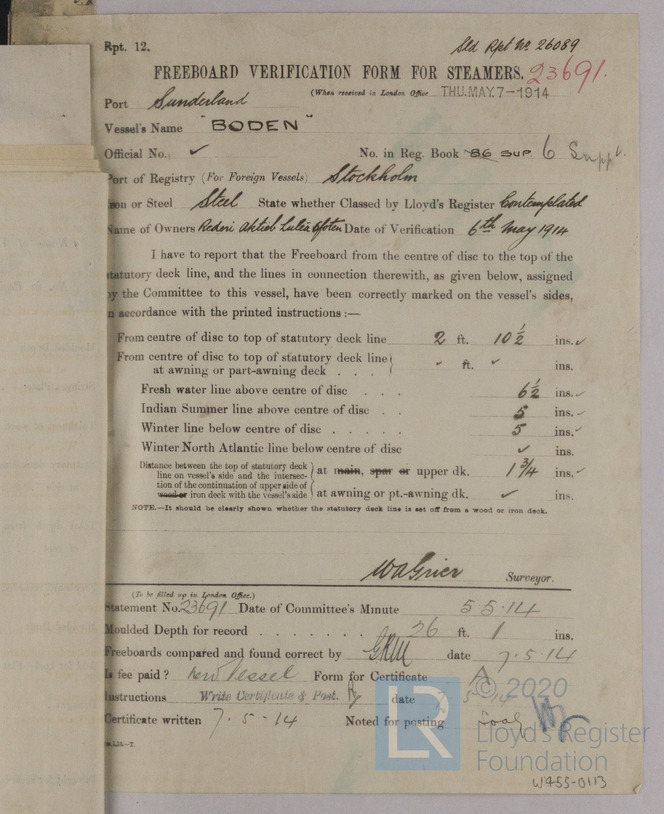 Rpt. 12.
Sld Rpt No 26089
FREEBOARD VERIFICATION FORM FOR STEAMERS. 23691.
(When received in London Office THU. MAY. 7-1914
Port Sunderland
Vessel's Name "BODEN"
Official No. ✓ No. in Reg. Book 86 SUP 6 Suppt.
Port of Registry (For Foreign Vessels) Stockholm
Iron or Steel Steel State whether Classed by Lloyd's Register Contemplated
Name of Owners Rederi Aktieb Luleå Ofoten Date of Verification 6th May 1914
I have to report that the Freeboard from the centre of disc to the top of the
statutory deck line, and the lines in connection therewith, as given below, assigned
by the Committee to this vessel, have been correctly marked on the vessel's sides,
in accordance with the printed instructions :—
From centre of disc to top of statutory deck line 2 ft. 10 1/2 ins. ✓
From centre of disc to top of statutory deck line
at awning or part-awning deck . . . ✓ ft. ✓ ins.
Fresh water line above centre of disc . . . 6 1/2 ins. ✓
Indian Summer line above centre of disc . . 5 ins. ✓
Winter line below centre of disc . . . . . 5 ins. ✓
Winter North Atlantic line below centre of disc ✓ ins.
Distance between the top of statutory deck
line on vessel's side and the intersec- at main, spar or upper dk. 1 3/4 ins. ✓
tion of the continuation of upper side of
wood or iron deck with the vessel's side at awning or pt.-awning dk. ✓ ins.
NOTE.—It should be clearly shown whether the statutory deck line is set off from a wood or iron deck.
W A Grier Surveyor.
(To be filled up in London Office.)
Statement No. 23691 Date of Committee's Minute 5 5.14
Moulded Depth for record . . . . . . . 26 ft. 1 ins.
Freeboards compared and found correct by GRM date 7.5.14
Is fee paid? New Vessel Form for Certificate A
Instructions Write Certificate & Post. date 5 14
Certificate written 7-5-14 Noted for posting
© 2020
LR
Lloyd's Register
Foundation
W455-0113